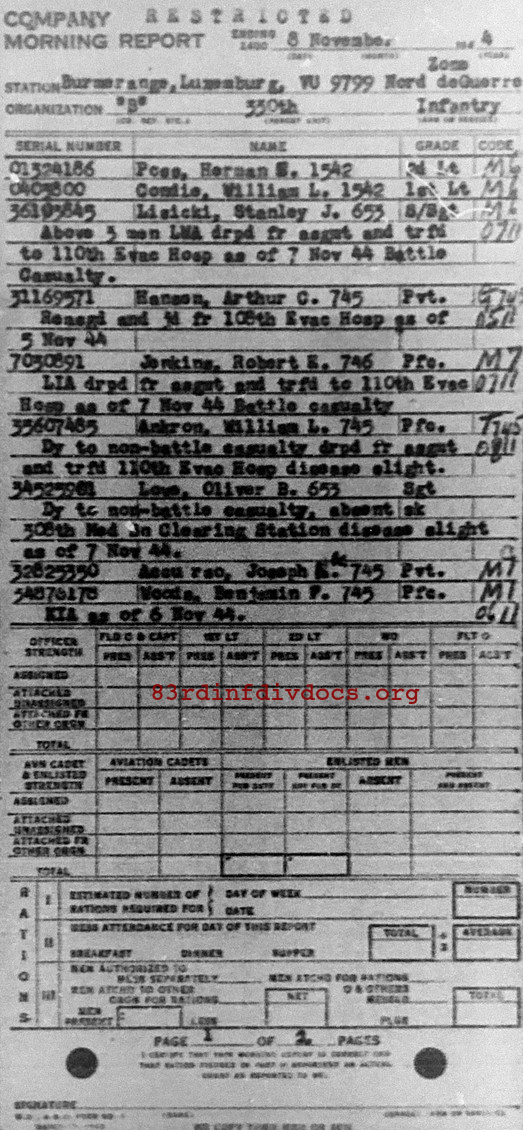 COMPANY RESTRICTED
MORNING REPORT ENDING 8 November 194 4
STATION Burmerange, Luxemburg, VU 9799 Nord deGuerre Zone
ORGANIZATION "B" 330th Infantry
SERIAL NUMBER NAME GRADE CODE
01324186 Poss, Herman E. 1542 2d Lt M6
Condie, William L. 1542 1st Lt M6
Lisicki, Stanley J. 653 S/Sgt
Above 3 men LWA drpd fr asgmt and trfd 0711
to 110th Evac Hosp as of 7 Nov 44 Battle
Casualty.
31169571 Hansen, Arthur C. 745 Pvt.
Reasgd and jd fr 108th Evac Hosp as of
5 Nov 44
7030891 Jenkins, Robert E. 746 Pfc. M7
LIA drpd fr asgmt and trfd to 110th Evac 0711
Hosp as of 7 Nov 44 Battle casualty
35607485 Ankron, William L. 745 Pfc.
Dy to non-battle casualty drpd fr asgmt 0811
and trfd 110th Evac Hosp disease slight.
Love, Oliver B. 653 Sgt
Dy to non-battle casualty, absent sk
308th Med Bn Clearing Station disease slight
as of 7 Nov 44.
32825350 Accu rso, Joseph 745 Pvt. M1
Woods, Benjamin F. 745 Pfc. M1
KIA as of 6 Nov 44. 0611
OFFICER STRENGTH FLD O & CAPT 1ST LT 2D LT WO FLT O
PRES ABS'T PRES ABS'T PRES ABS'T PRES ABS'T PRES ABS'T
ASSIGNED
ATTACHED UNASSIGNED
83rdinfdivdocs.org
ATTACHED FR OTHER ORGN
TOTAL
AVN CADET & ENLISTED STRENGTH AVIATION CADETS ENLISTED MEN
PRESENT ABSENT PRESENT FOR DUTY PRESENT NOT FOR DY ABSENT PRESENT AND ABSENT
ASSIGNED
ATTACHED UNASSIGNED
ATTACHED FR OTHER ORGN
TOTAL
RATIONS
I ESTIMATED NUMBER OF RATIONS REQUIRED FOR DAY OF WEEK DATE NUMBER
II MESS ATTENDANCE FOR DAY OF THIS REPORT TOTAL ÷ 3 AVERAGE
BREAKFAST DINNER SUPPER
III MEN AUTHORIZED TO MESS SEPARATELY MEN ATCHD FOR RATIONS
MEN ATCHD TO OTHER ORGN FOR RATIONS NET TOTAL
MEN PRESENT LESS PLUS
PAGE 1 OF 2 PAGES
I CERTIFY THAT THIS MORNING REPORT IS CORRECT AND
SIGNATURE